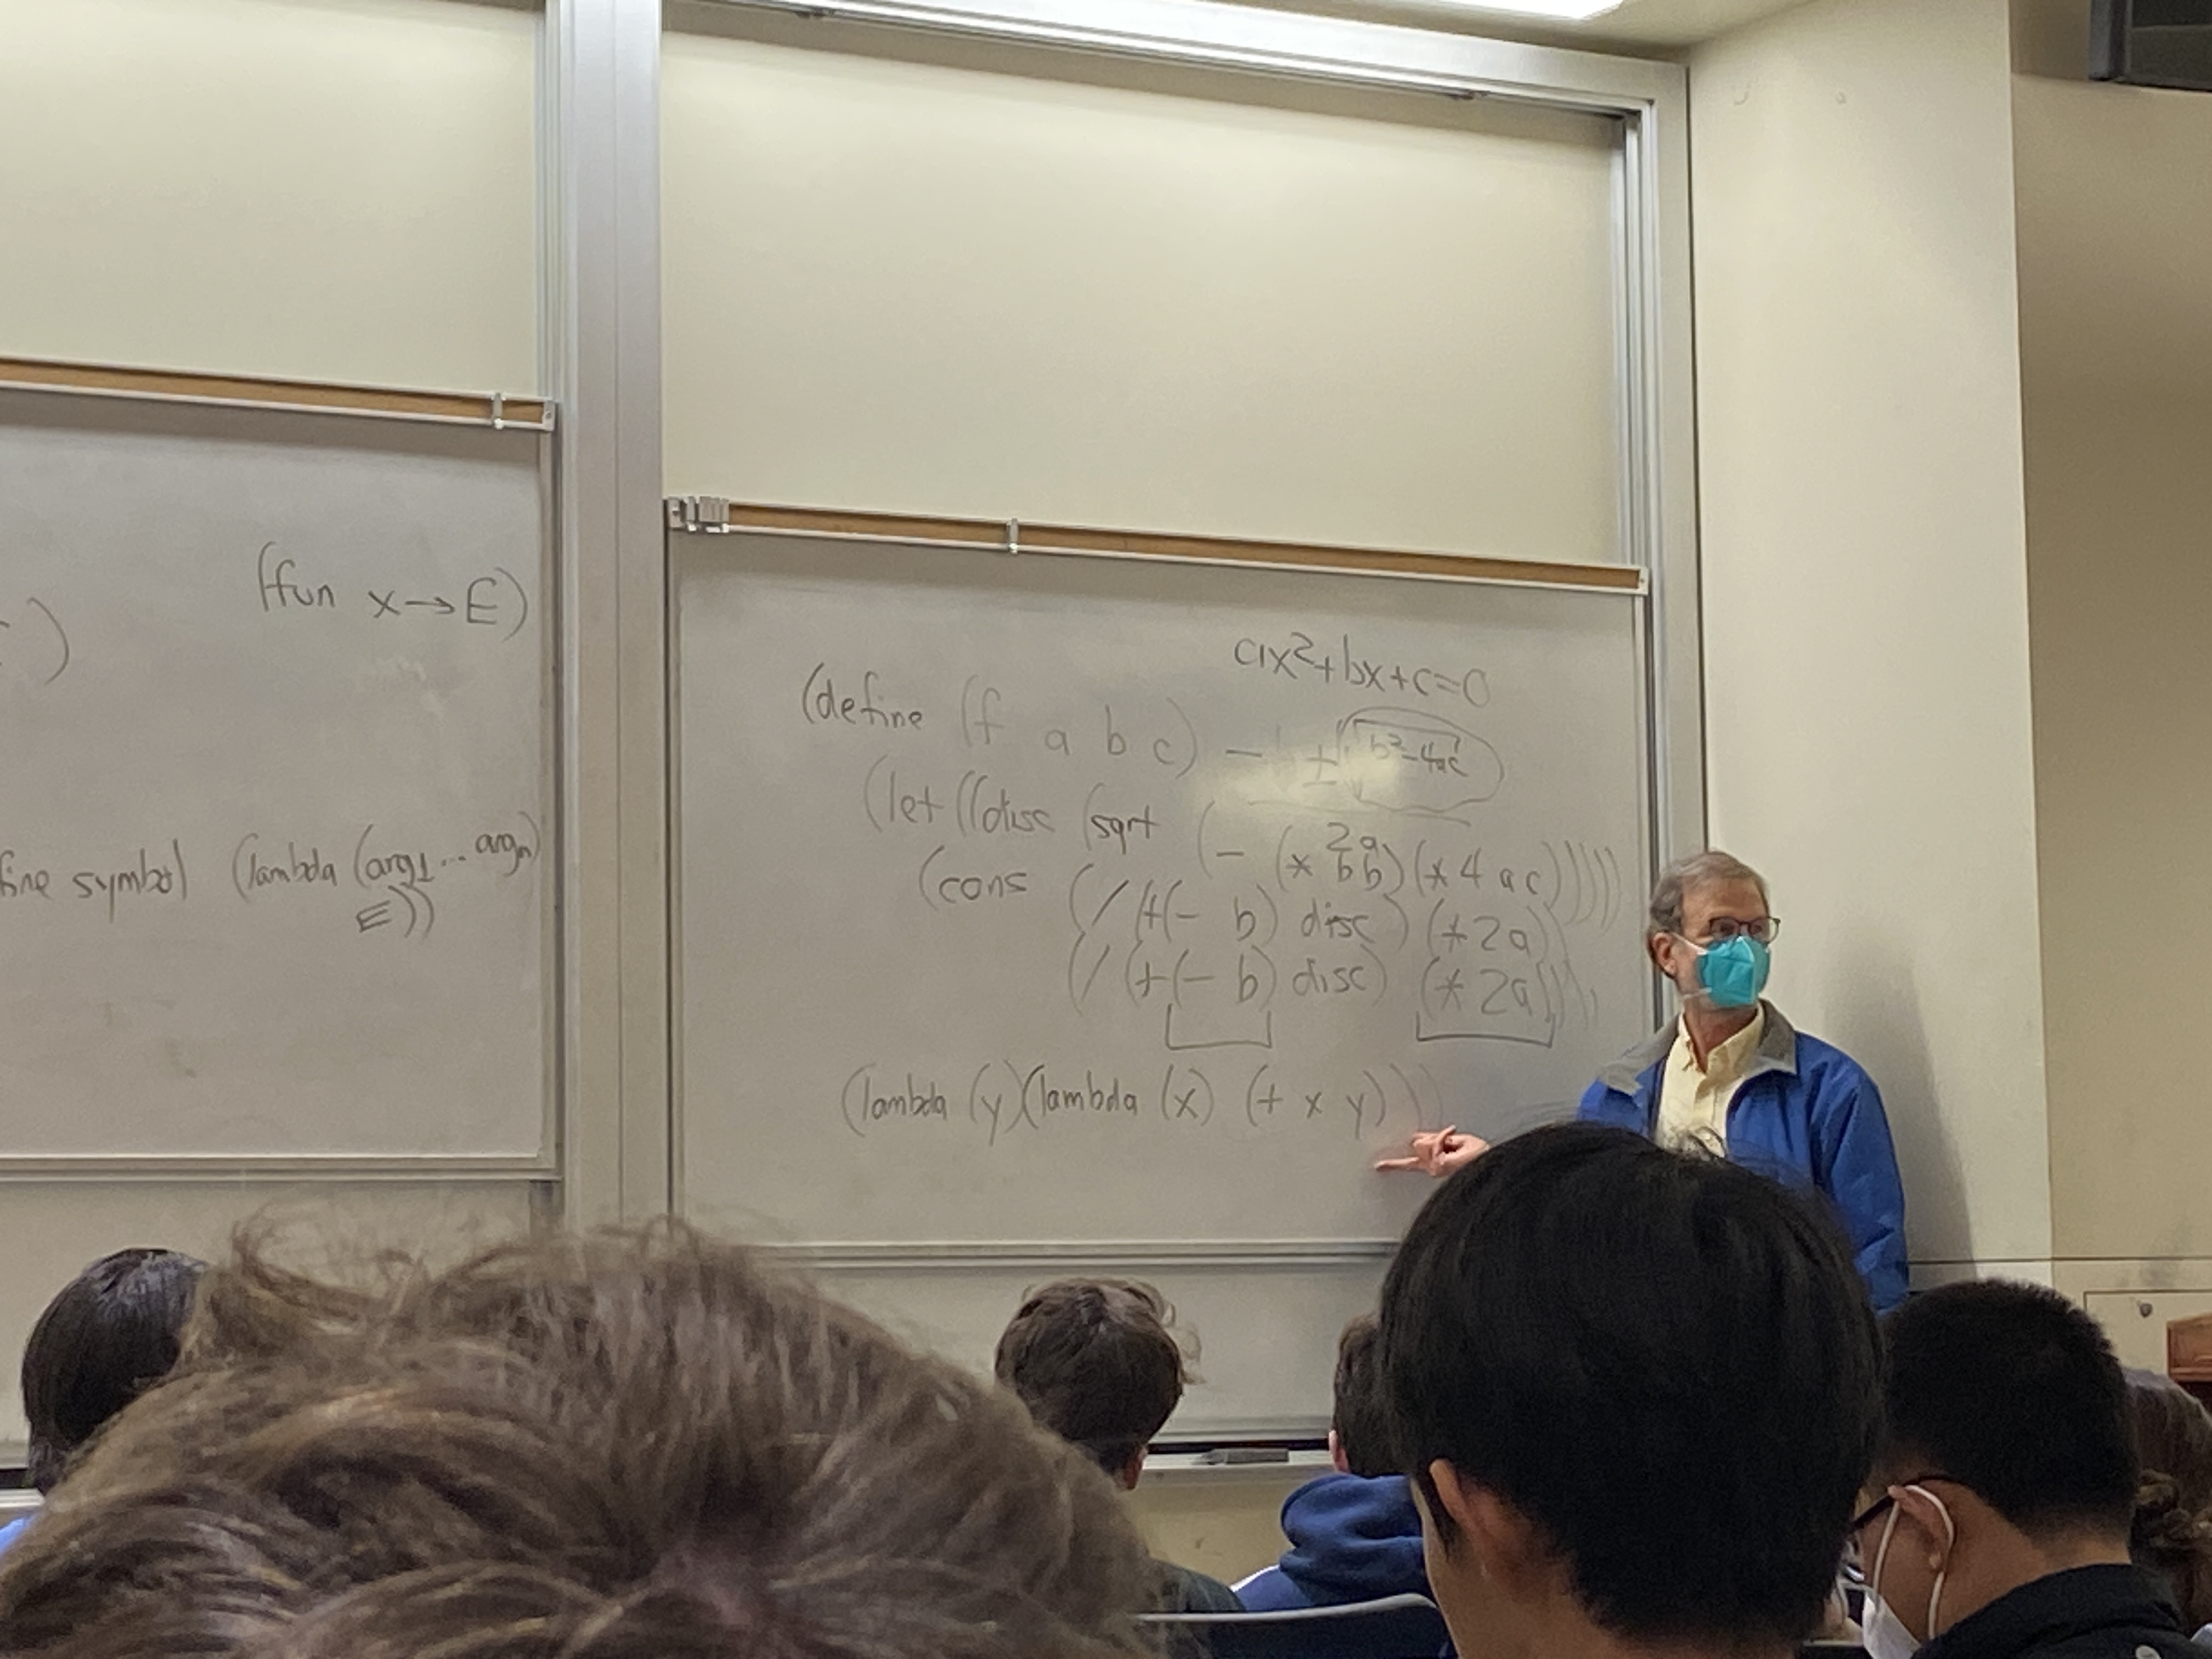 (fun x→E)
fine symbol (lambda (arg1 ... argn)
E))
ax²+bx+c=0
(define (f a b c) − b ± √b²−4ac
2a
(let ((disc (sqrt (− (* b b) (* 4 a c)))))
(cons (/ (+ (− b) disc) (* 2 a))
(/ (+ (− b) disc) (* 2 a))))
(lambda (y) (lambda (x) (+ x y)))